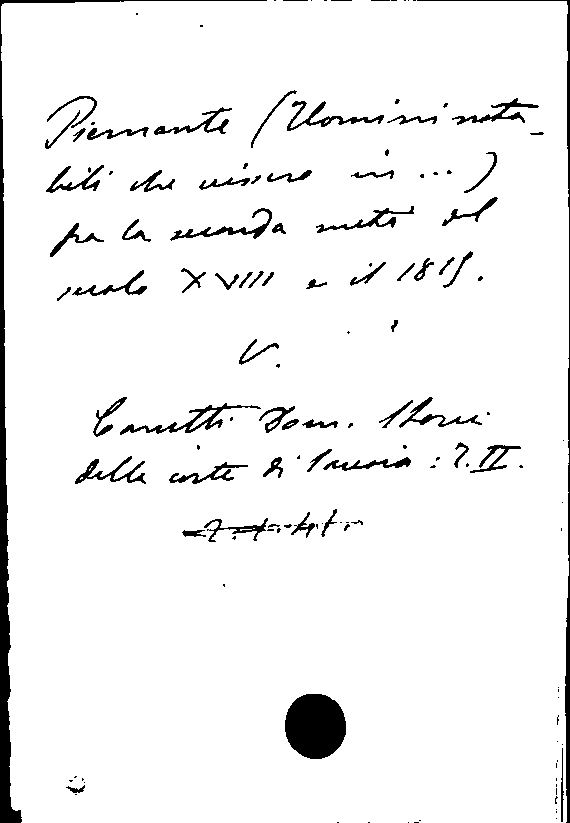 Piemonte (Uomini nota-
bili che vissero in ...)
fra la seconda metà del
secolo XVIII e il 1815.
V.
Carutti Dom. Storia
della corte di Savoia: T. II.